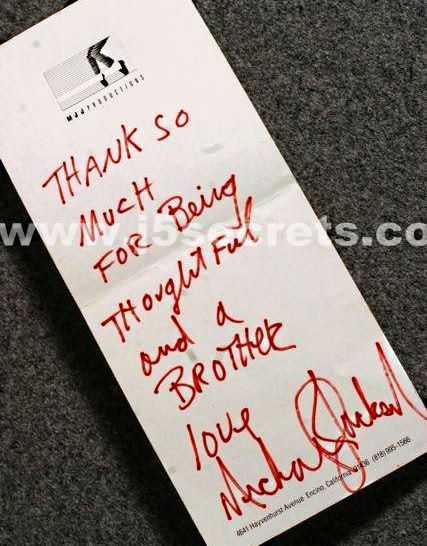 MJJ PRODUCTIONS
THANK SO
MUCH
FOR Being
THoughtFul
and a
BROTHER
love
Michael Jackson
4641 Hayvenhurst Avenue, Encino, California 91436 (818) 995-1566
www.j5secrets.com